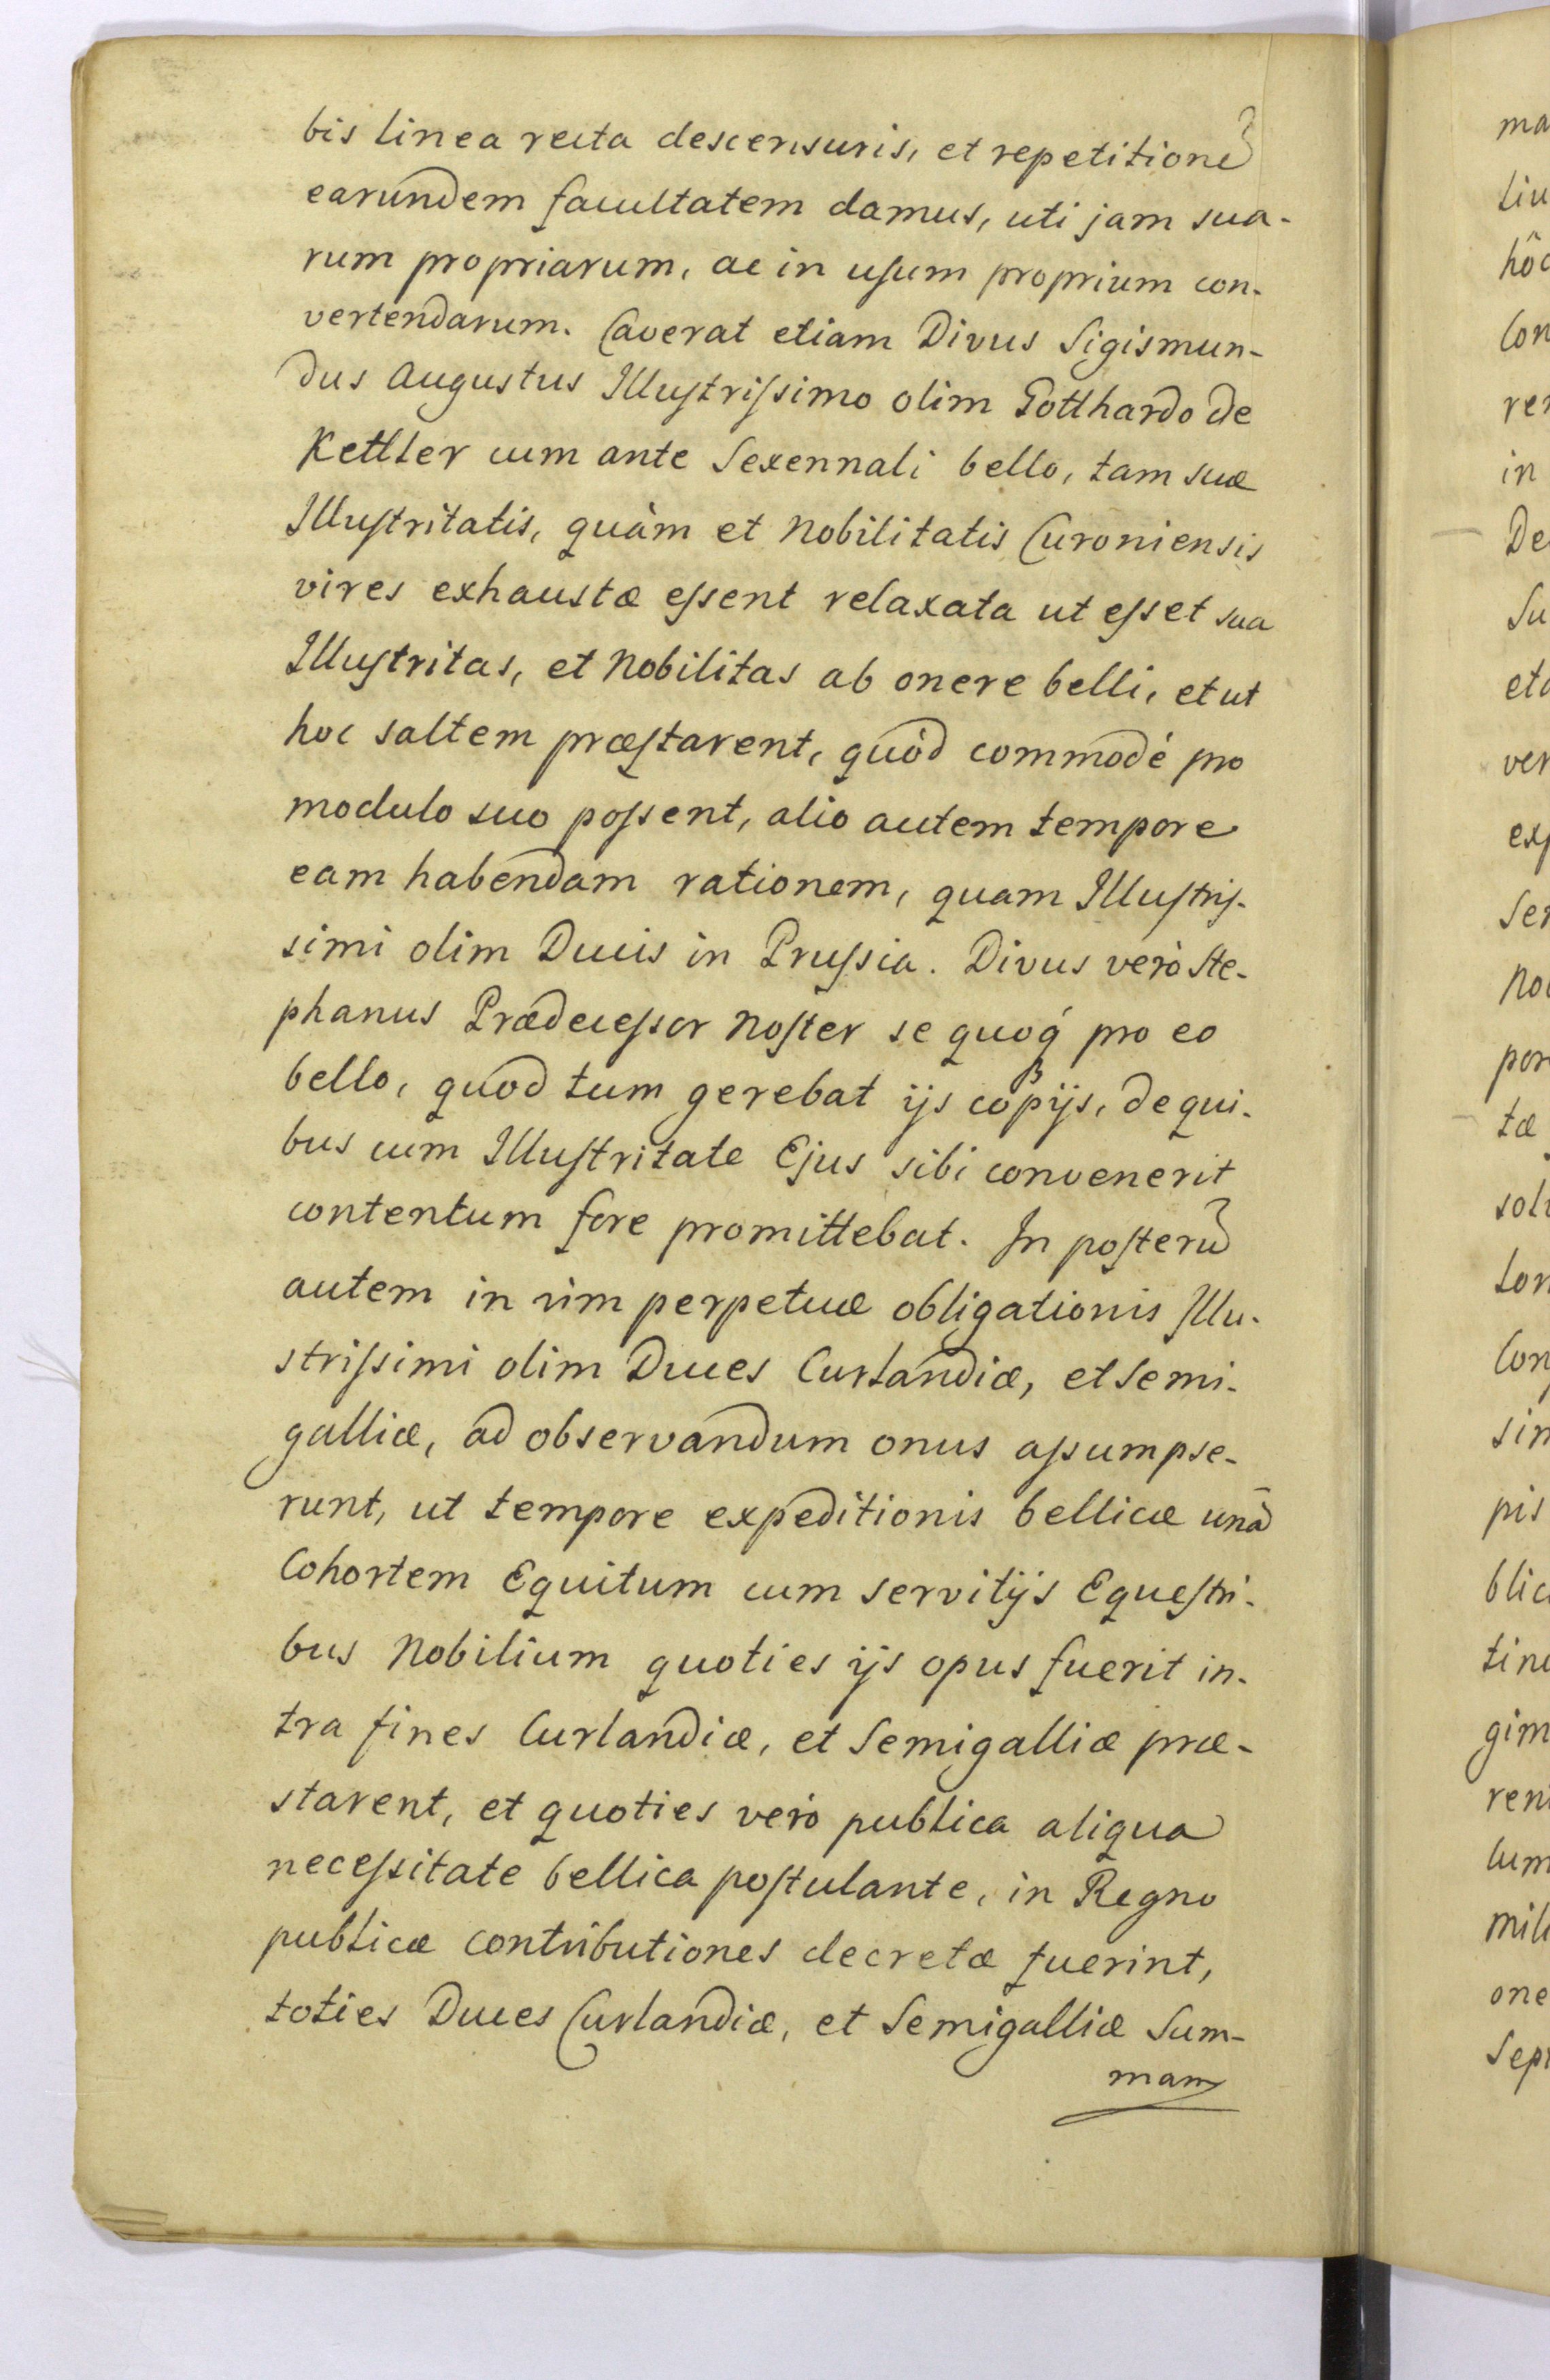 bis linea recta descensuris, et repetitionẽ
earundem facultatem damus, uti jam sua-
rum propriarum, ac in usum proprium con-
vertendarum. Caverat etiam Divus Sigismun-
dus Augustus Illustrissimo olim Gotthardo de
Kettler cum ante Sexennali bello, tam suæ
Illustritatis, quàm et Nobilitatis Curoniensis
vires exhaustæ essent relaxata ut esset sua
Illustritas, et Nobilitas ab onere belli, et ut
hoc saltem præstarent, quòd commodè pro
modulo suo possent, alio autem tempore
eam habendam rationem, quam Illustris-
simi olim Ducis in Prussia. Divus verò Ste-
phanus Prædecessor Noster se quoq́ pro eo
bello, quod tum gerebat ijs copijs, de qui-
bus cum Illustritate Ejus sibi convenerit
contentum fore promittebat. In posterũ
autem in vim perpetuæ obligationis Illu-
strissimi olim Duces Curlandiæ, et Semi-
galliæ, ad observandum onus assumpse-
runt, ut tempore expeditionis bellicæ unã
Cohortem Equitum cum servitijs Equestri-
bus Nobilium quoties ijs opus fuerit in-
tra fines Curlandiæ, et Semigalliæ præ-
starent, et quoties verò publica aliqua
necessitate bellica postulante, in Regno
publicæ contributiones decretæ fuerint,
toties Duces Curlandiæ, et Semigalliæ Sum-
mam